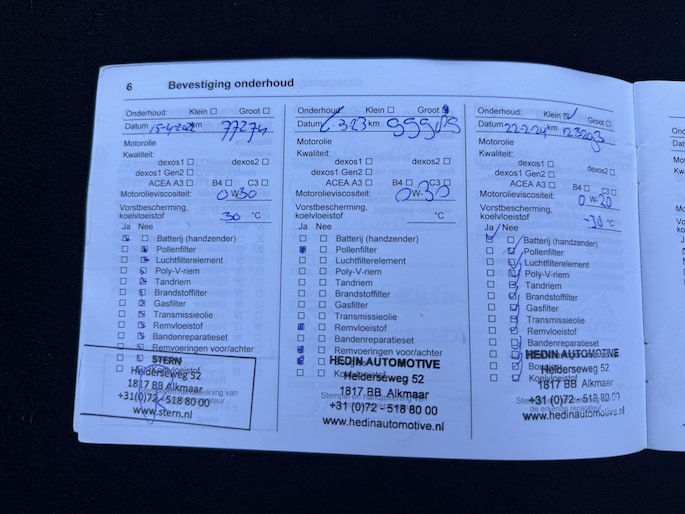 6 Bevestiging onderhoud
Onderhoud: Klein Groot
Datum 15-4-2022 km 77274
Motorolie
Kwaliteit:
dexos1 dexos2
dexos1 Gen2
ACEA A3 B4 C3
Motorolieviscositeit: 0 W-30
Vorstbescherming,
koelvloeistof 30 °C
Ja Nee
Batterij (handzender)
Pollenfilter
Luchtfilterelement
Poly-V-riem
Tandriem
Brandstoffilter
Gasfilter
Transmissieolie
Remvloeistof
Bandenreparatieset
Remvoeringen voor/achter
STERN
Helderseweg 52
1817 BB Alkmaar
+31(0)72 - 518 80 00
www.stern.nl
Onderhoud: Klein Groot
Datum km
Motorolie
Kwaliteit:
dexos1 dexos2
dexos1 Gen2
ACEA A3 B4 C3
Motorolieviscositeit: 0 W-30
Vorstbescherming,
koelvloeistof °C
Ja Nee
Batterij (handzender)
Pollenfilter
Luchtfilterelement
Poly-V-riem
Tandriem
Brandstoffilter
Gasfilter
Transmissieolie
Remvloeistof
Bandenreparatieset
Remvoeringen voor/achter
HEDIN AUTOMOTIVE
Helderseweg 52
1817 BB Alkmaar
+31 (0)72 - 518 80 00
www.hedinautomotive.nl
Onderhoud: Klein Groot
Datum 22-2-24 km 123293
Motorolie
Kwaliteit:
dexos1 dexos2
dexos1 Gen2
ACEA A3 B4 C3
Motorolieviscositeit: 0 W-20
Vorstbescherming,
koelvloeistof -30 °C
Ja Nee
Batterij (handzender)
Pollenfilter
Luchtfilterelement
Poly-V-riem
Tandriem
Brandstoffilter
Gasfilter
Transmissieolie
Remvloeistof
Bandenreparatieset
HEDIN AUTOMOTIVE
Helderseweg 52
1817 BB Alkmaar
+31 (0)72 - 518 80 00
www.hedinautomotive.nl